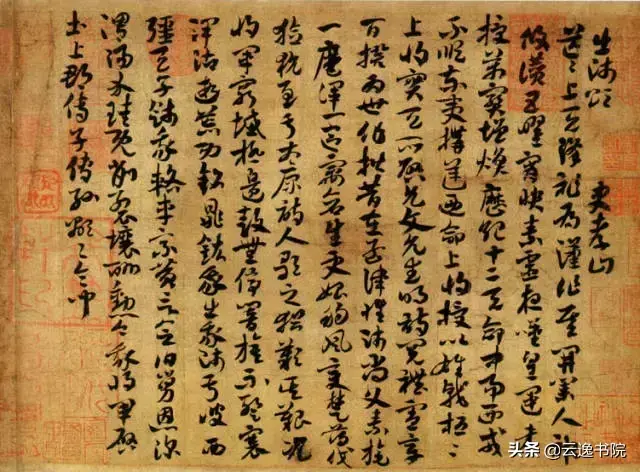 出師頌 史孝山
茫茫上天降祚為漢作基開業人神
攸讚五曜霄映素靈夜嘆皇運來
授萬寶增煥歷紀十二天命中易西戎
不順東夷構逆乃命上將授以雄戟桓桓
上將實天所啟允文允武明詩閱禮憲章
百揆為世作楷昔在孟津惟師尚父素旄
一麾渾一區宇蒼生更始朔風變楚薄伐
獫狁至于太原詩人歌之猶歎其艱況
我將軍窮城極邊鼓無停響旗不蹔褰
澤沾遐荒功銘鼎鉉我出我師于彼西
疆天子餞我路車乘黃言念伯舅恩深
渭陽介珪既削裂壤酬勳今我將軍啟
土上郡傳子傳孫顯顯令問
头条 @云逸书院